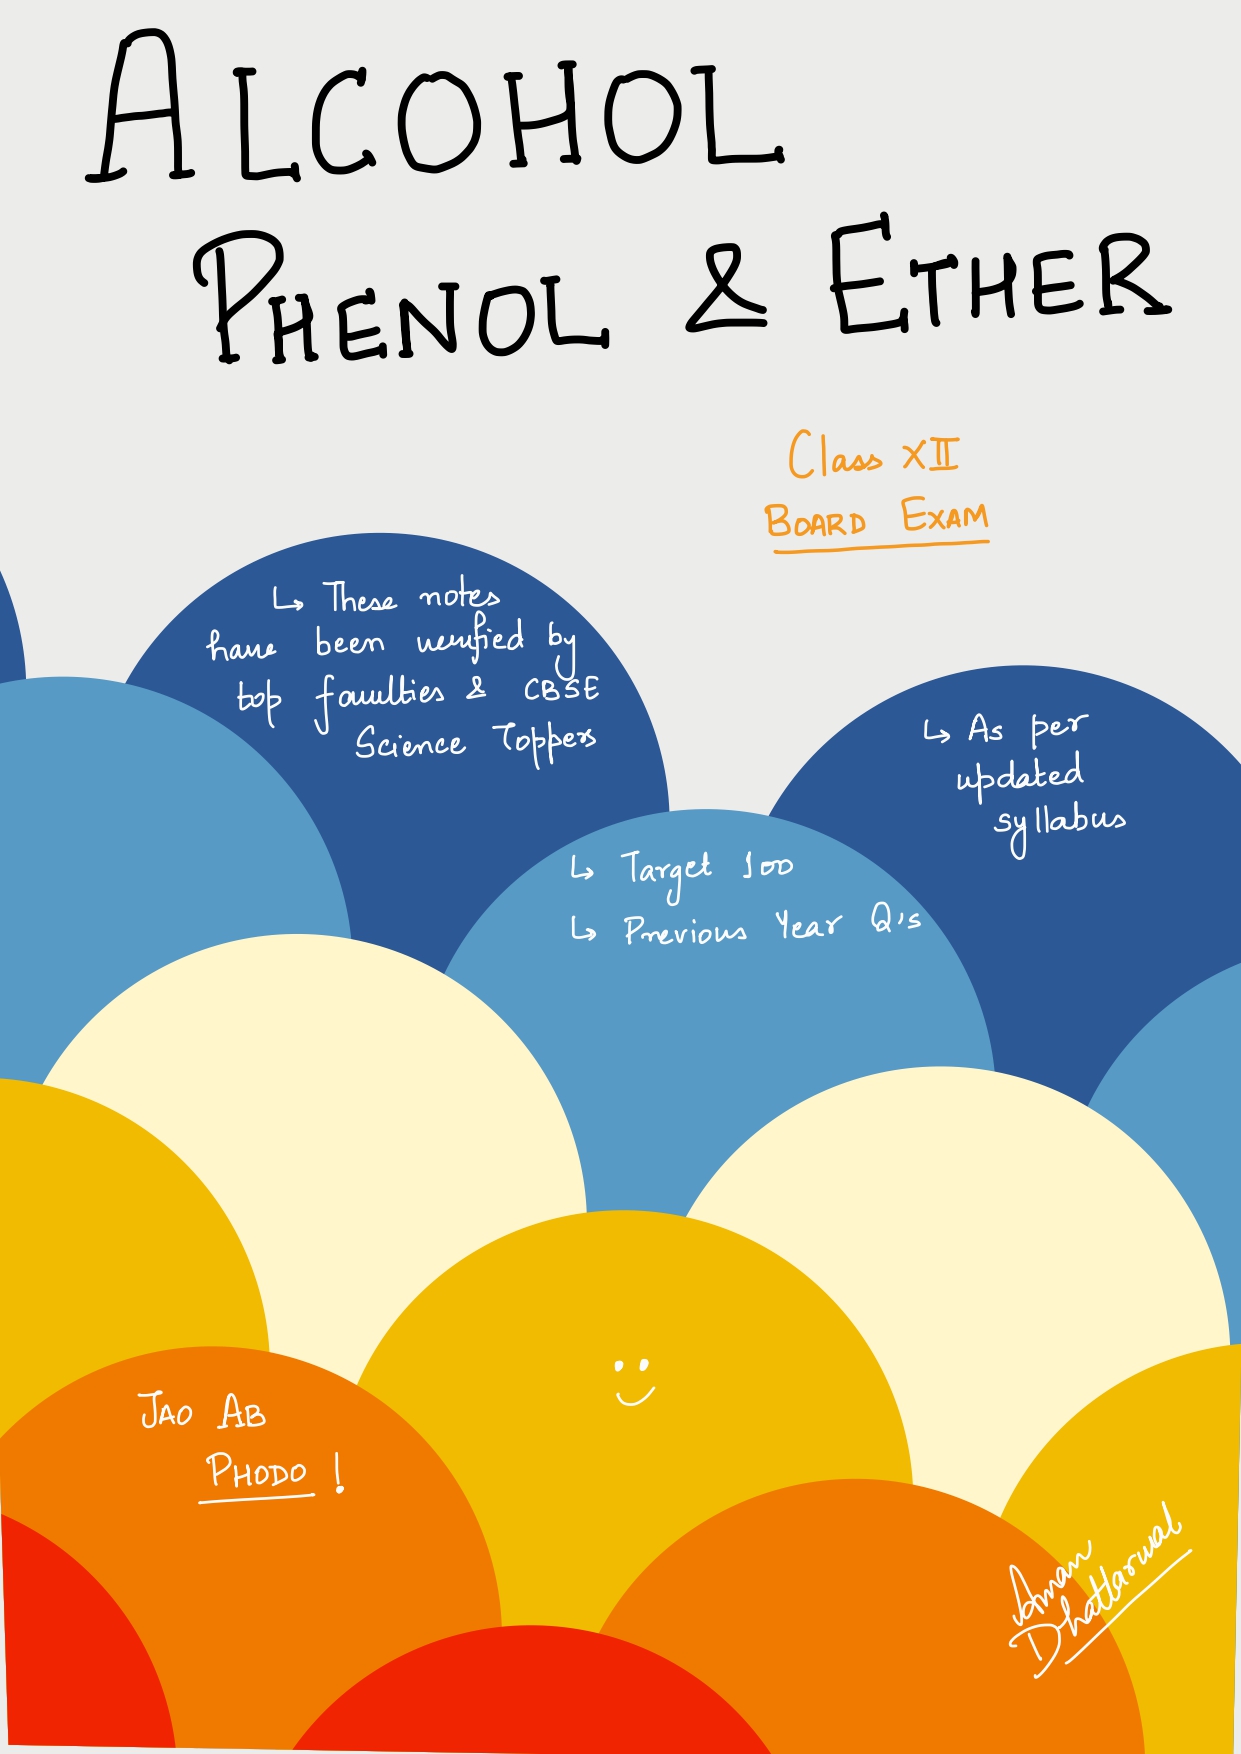 ALCOHOL
PHENOL & ETHER
Class XII
BOARD EXAM
↳ These notes
have been verified by
top faculties & CBSE
Science Toppers
↳ As per
updated
syllabus
↳ Target 100
↳ Previous Year Q's
JAO AB
PHODO !
Aman
Dhattarwal